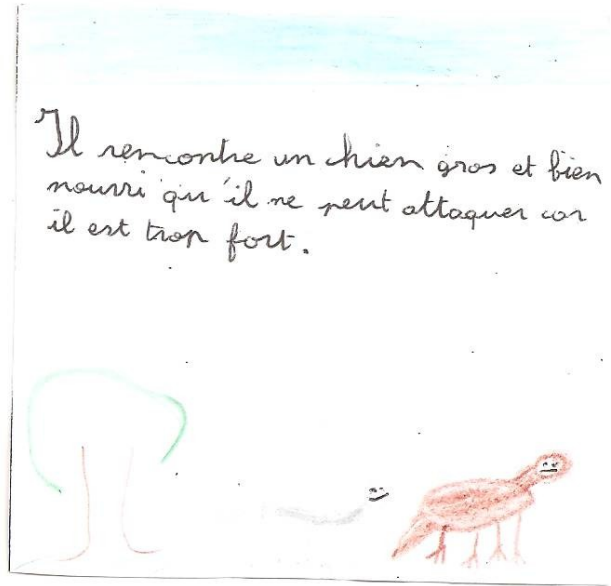 Il rencontre un chien gros et bien
nourri qu'il ne peut attaquer car
il est trop fort.